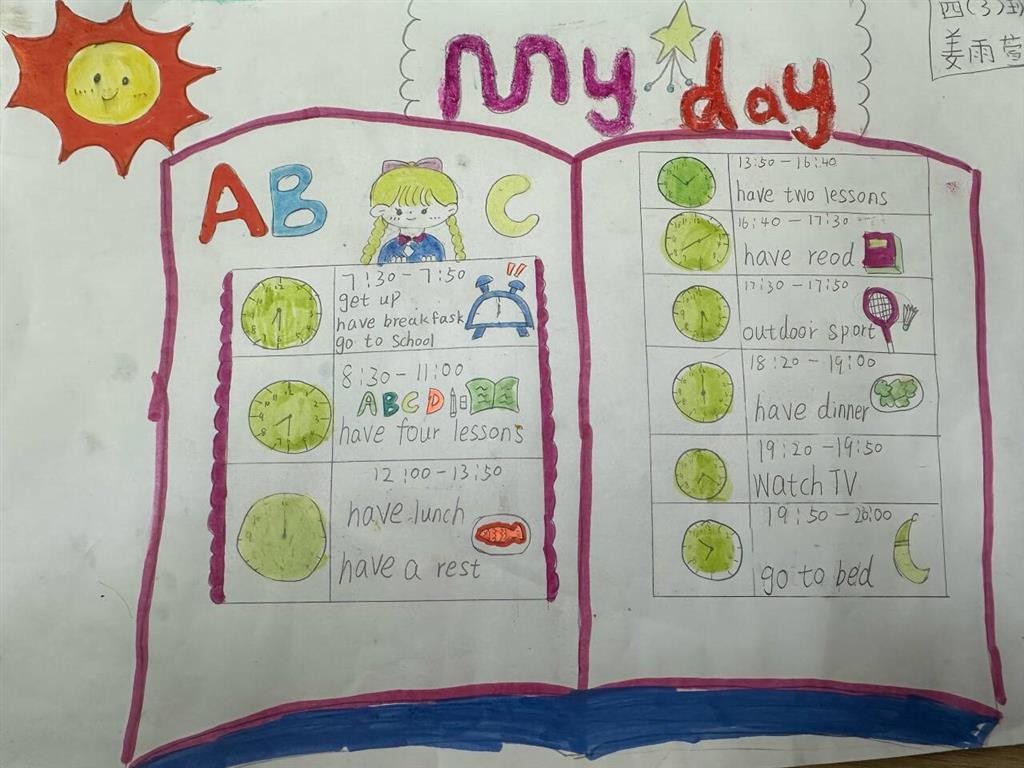 四(3)班
姜雨萱
My day
ABC
7:30-7:50
get up
have breakfask
go to school
8:30-11:00
ABCD
have four lessons
12:00-13:50
have lunch
have a rest
13:50-16:40
have two lessons
16:40-17:30
have reod
17:30-17:50
outdoor sport
18:20-19:00
have dinner
19:20-19:50
Watch TV
19:50-20:00
go to bed